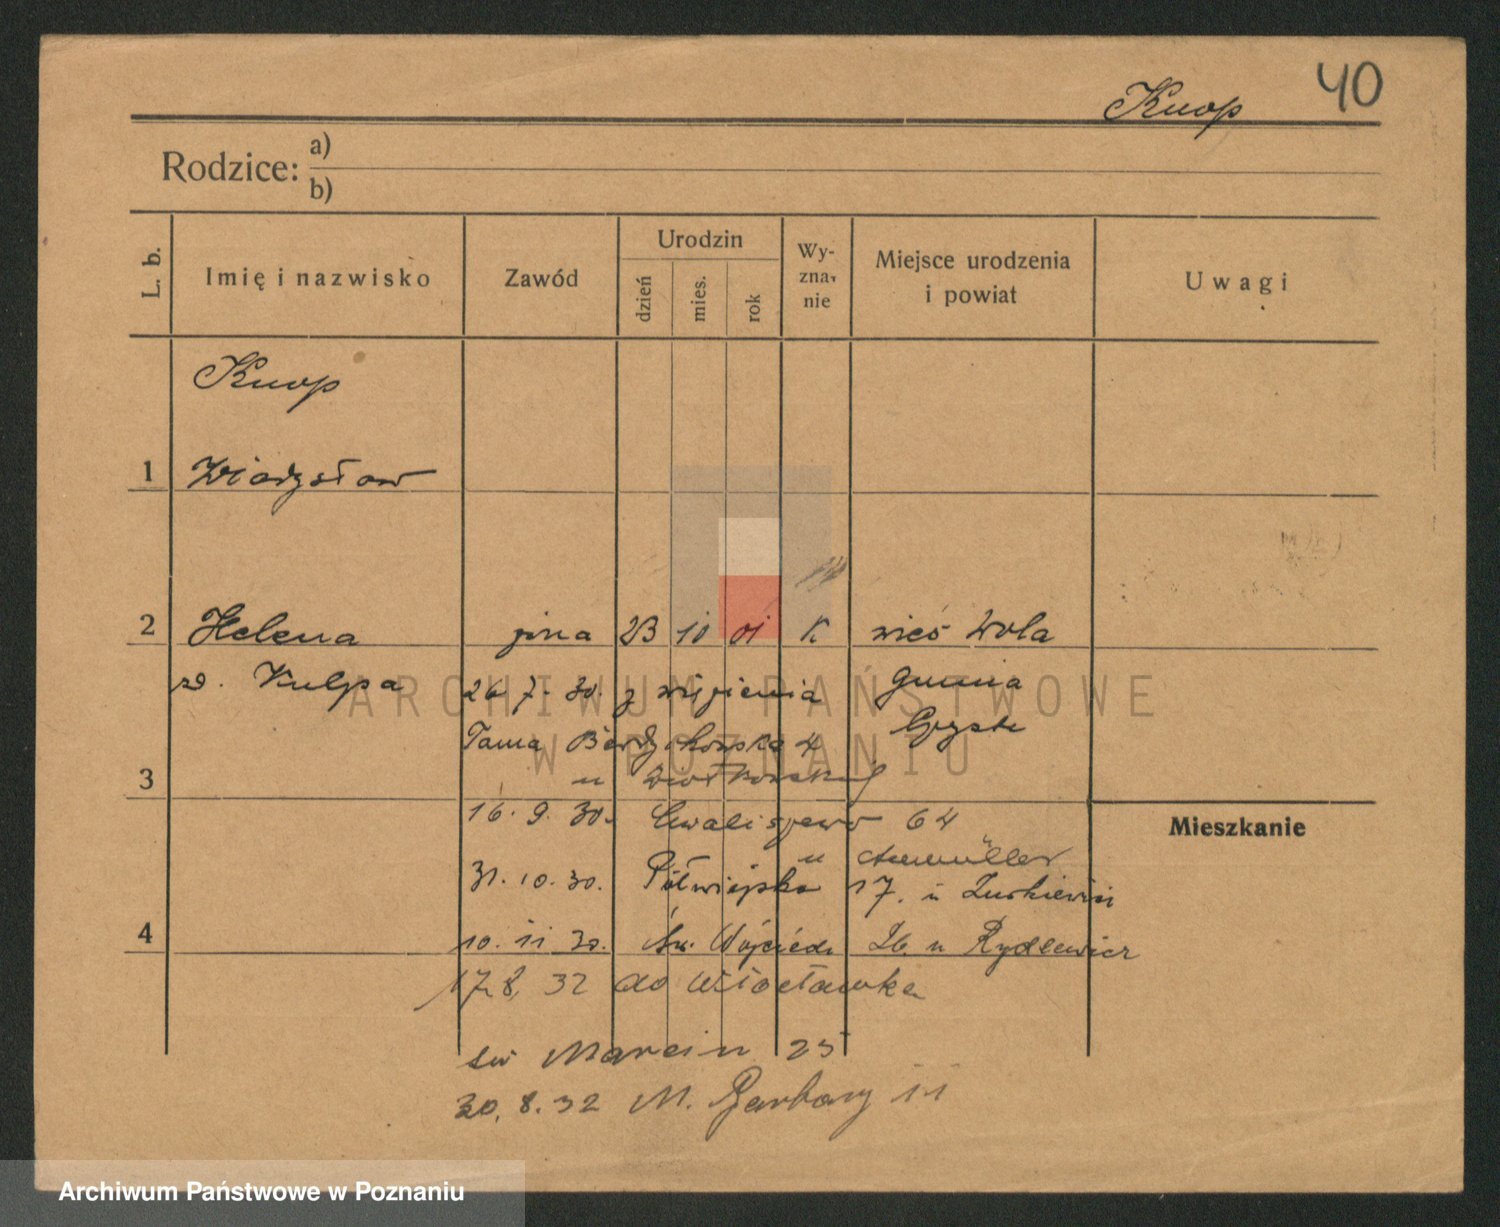 40
Knop
Rodzice: a)
b)
L. b.
Imię i nazwisko
Zawód
Urodzin
dzień
mies.
rok
Wy-
zna-
nie
Miejsce urodzenia
i powiat
Uwagi
Knop
1 Władysław
2 Helena żona 23 10 01 K wieś Wola
z d. Kulpa 26 7. 30. z więzienia gmina
Tama 4
3 u
16. 9. 30. Chwaliszewo 64
Mieszkanie
u
31. 10. 30. Półwiejska 17. u
4 10. 11 30. Św. Wojciech 26. u Rydlewicz
17 8. 32 do Włocławka
św Marcin 25
30. 8. 32 M. Garbary 11
ARCHIWUM PAŃSTWOWE
W POZNANIU
Archiwum Państwowe w Poznaniu